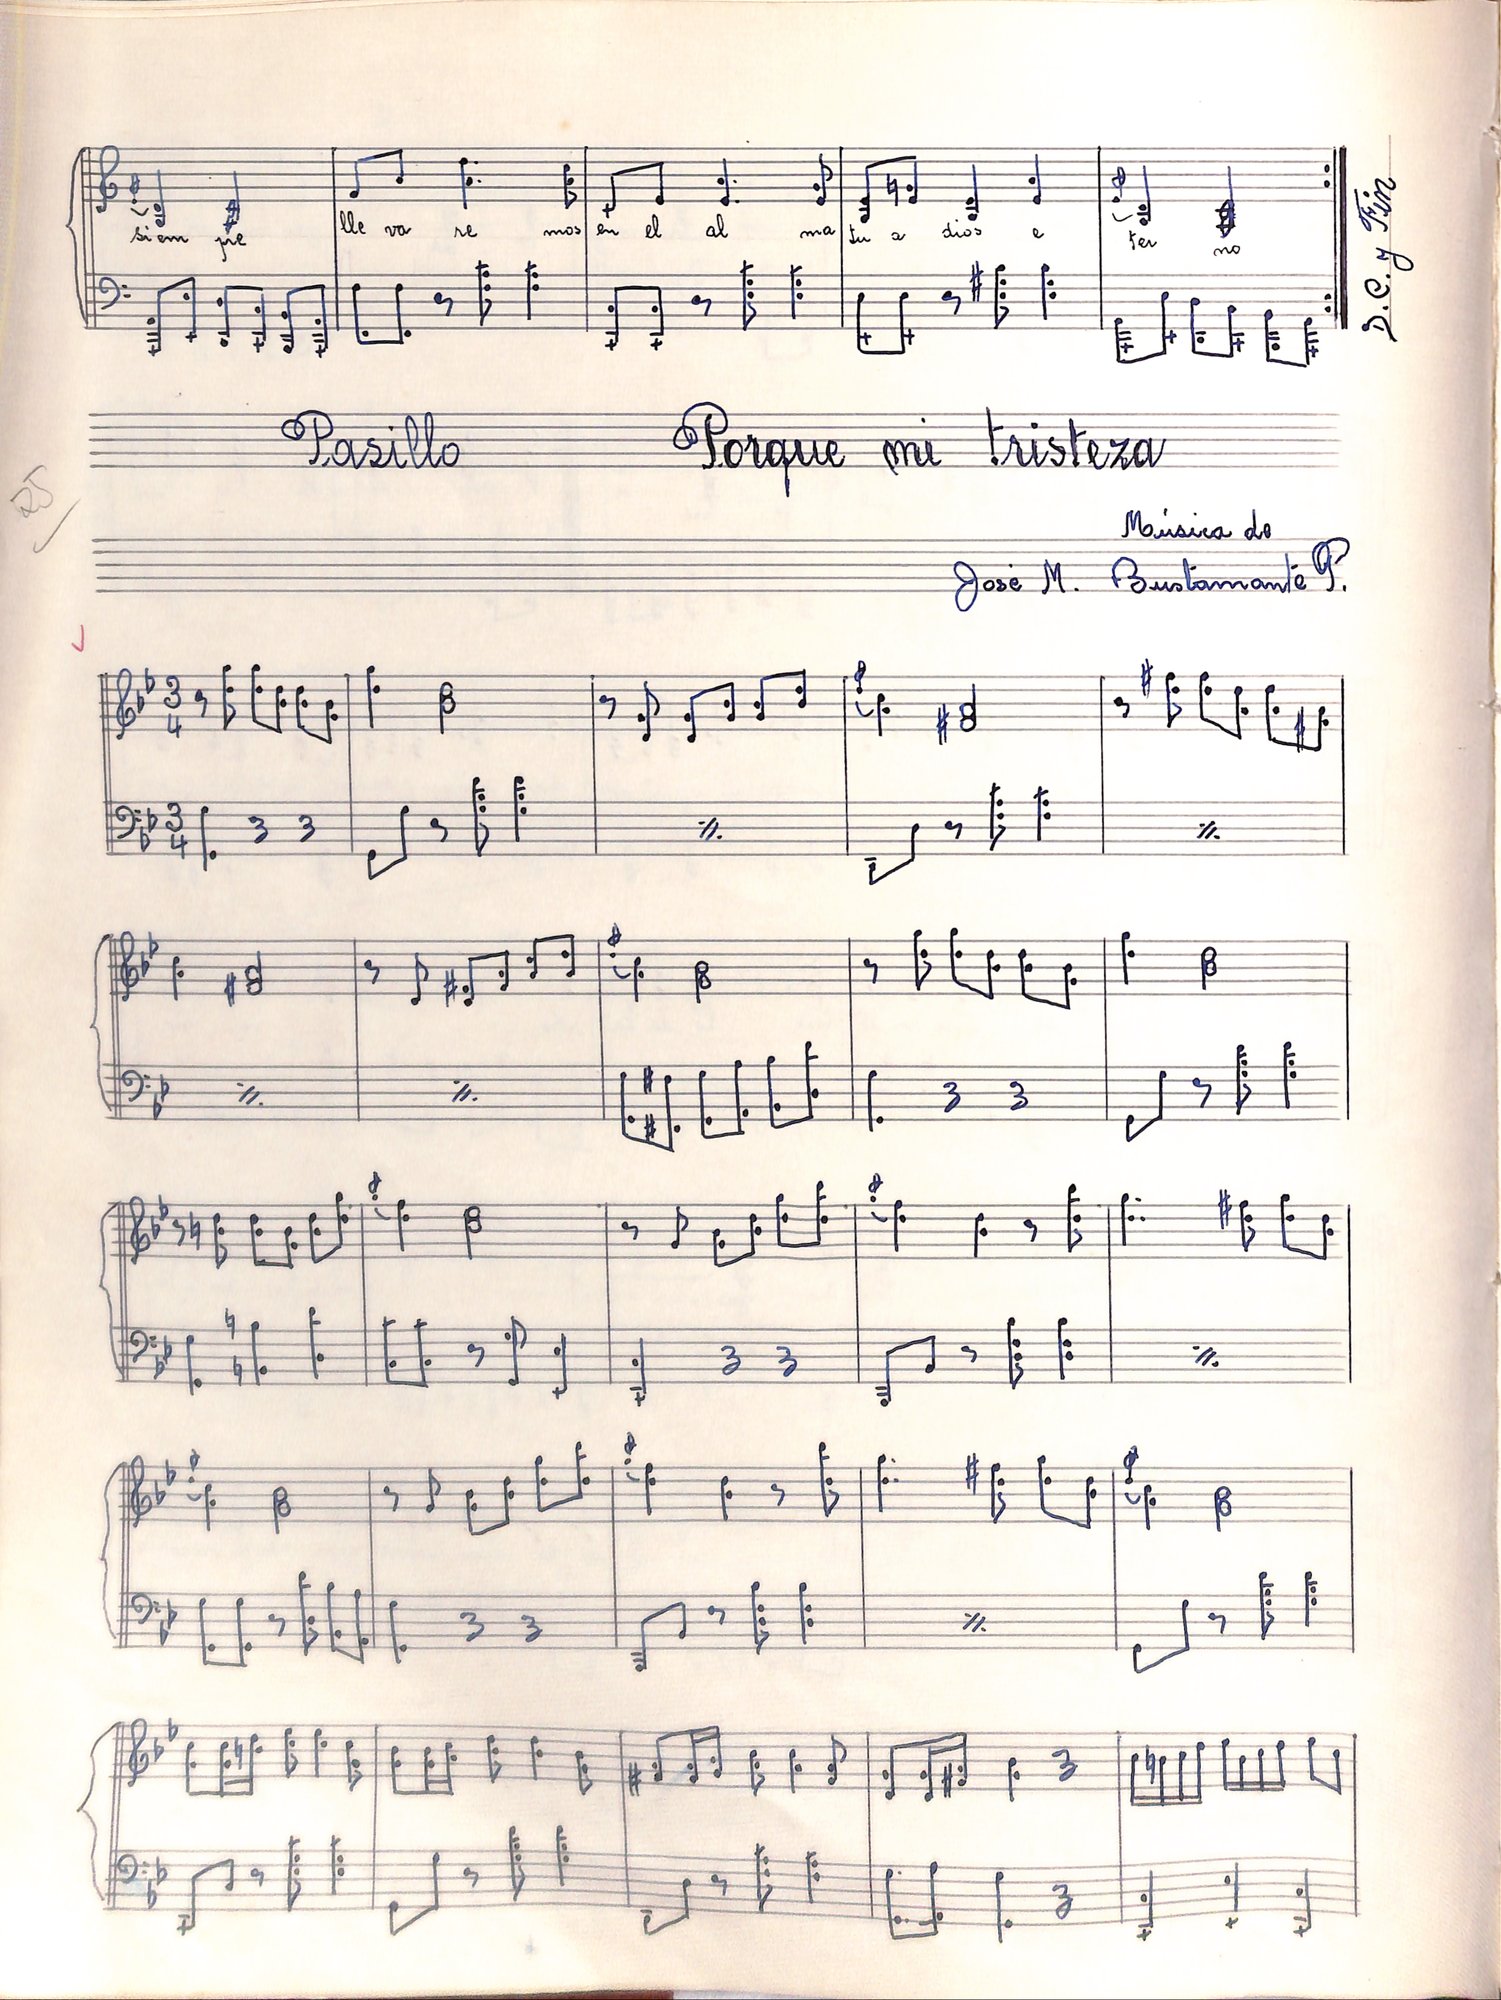 siem pre lle va re mos en el al ma tu a dios e ter no
D.C. y Fin
Pasillo Porque mi tristeza
25
Música de
José M. Bustamante P.
3 4
3 4